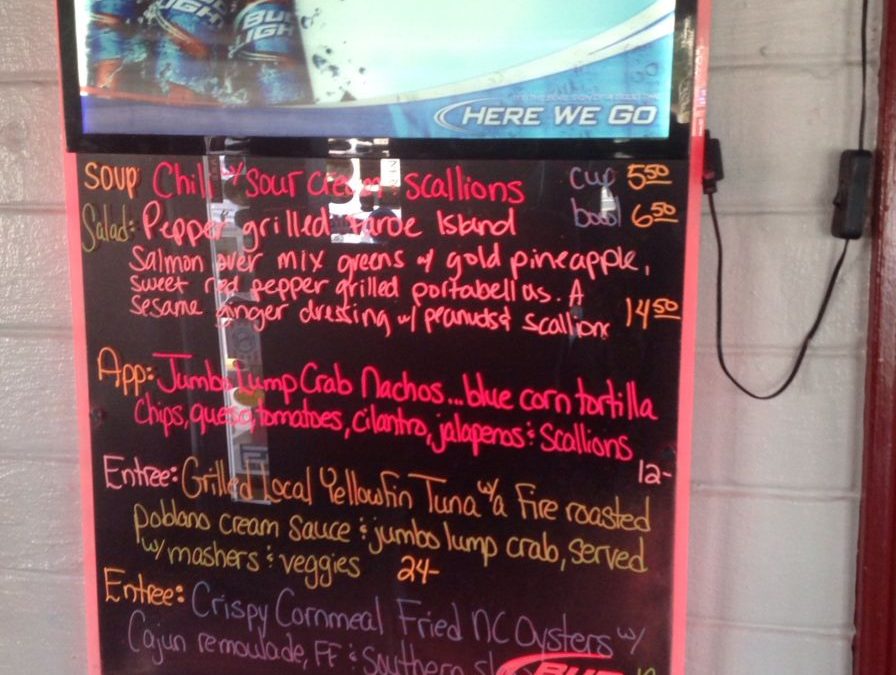 BUD LIGHT
BUD LIGHT
HERE WE GO
Soup Chili w/ sour cream & scallions cup 5.50
bowl 6.50
Salad: Pepper grilled Faroe Island
Salmon over mix greens w/ gold pineapple,
sweet red pepper grilled portabellas. A
Sesame ginger dressing w/ peanuts & scallions 14.50
App: Jumbo Lump Crab Nachos... blue corn tortilla
Chips, queso, tomatoes, cilantro, jalapenos & Scallions
12-
Entree: Grilled Local Yellowfin Tuna w/ a fire roasted
poblano cream sauce & jumbo lump crab, served
w/ mashers & veggies 24-
Entree: Crispy Cornmeal Fried NC Oysters w/
Cajun remoulade, FF & Southern
BUD